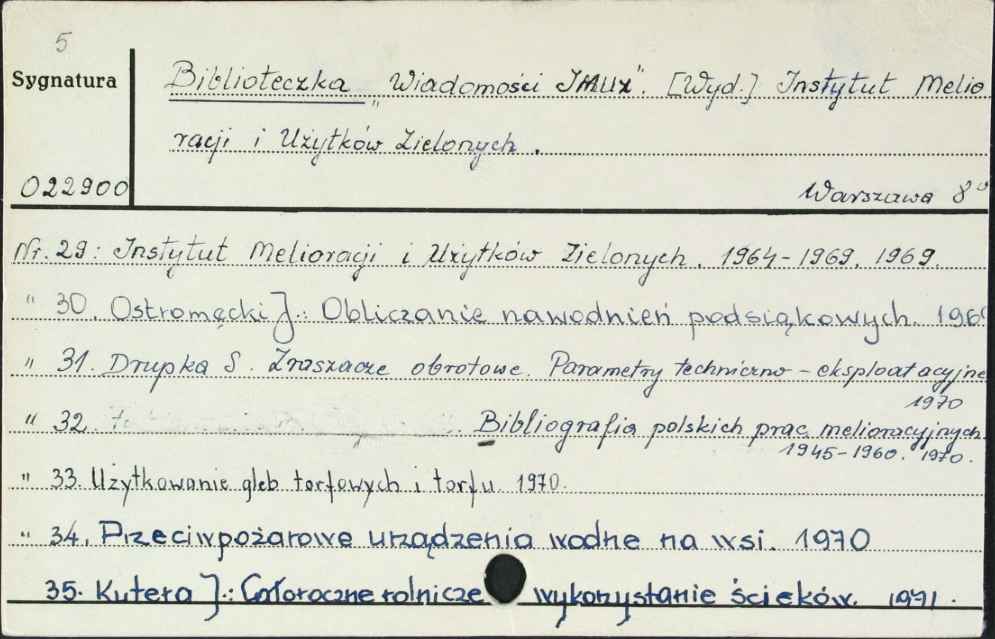 5
Sygnatura
Biblioteczka „Wiadomości IMUZ". [Wyd.] Instytut Melio
racji i Użytków Zielonych.
022900
Warszawa 8°
Nr. 29: Instytut Melioracji i Użytków Zielonych. 1964-1969. 1969.
" 30. Ostromęcki J.: Obliczanie nawodnień podsiąkowych. 1969
" 31. Drupka S. Zraszacze obrotowe. Parametry techniczno-eksploatacyjne
1970
" 32. Bibliografia polskich prac melioracyjnych
1945-1960. 1970.
" 33. Użytkowanie gleb torfowych i torfu. 1970.
" 34. Przeciwpożarowe urządzenia wodne na wsi. 1970
35. Kutera J.: Całoroczne rolnicze wykorzystanie ścieków. 1971.